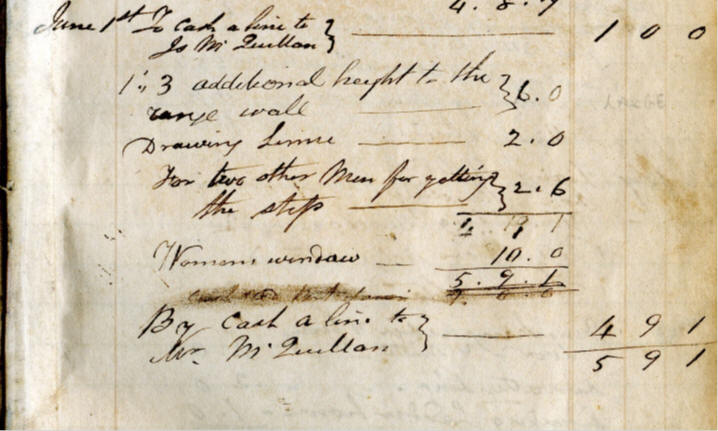 4. 8. 7
June 1st To Cash a line to
Jo McQuillan } 1 0 0
1": 3 additional height to the
range wall } 6. 0
Drawing Lime 2. 0
For two other Men for getting
the steps } 2. 6
1
Womens window 10. 0
5. 9. 1
By Cash a line to
Mr. McQuillan } 4 9 1
5 9 1